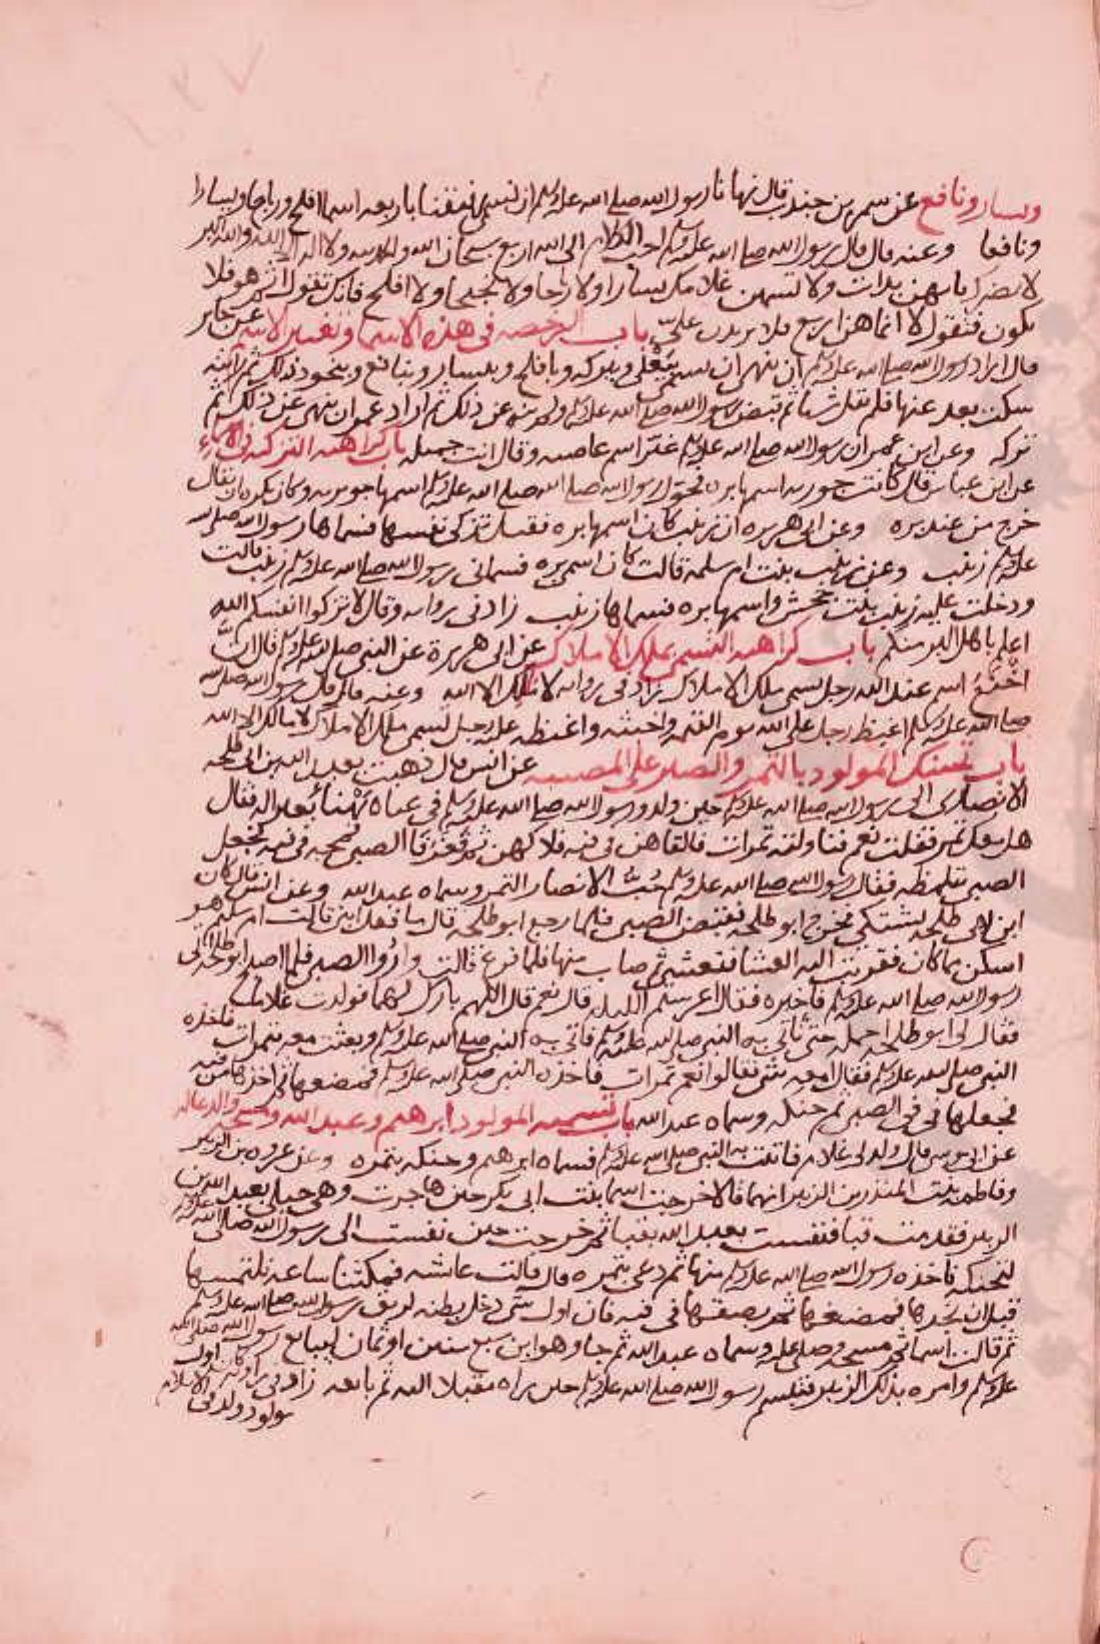 ويسار ونافع عن سمرة بن جندب قال نهانا رسول الله صلى الله عليه وسلم ان نسمي رقيقنا باربعه اسما افلح ورباحا ويسارا
ونافعا وعنه قال قال رسول الله صلى الله عليه وسلم احب الكلام الى الله اربع سبحان الله والحمد لله ولا اله الا الله والله اكبر
لا يضرك بايهن بدات ولا تسمين غلامك يسارا ولا رباحا ولا نجيحا ولا افلح فانك تقول اثم هو فلا
يكون فتقول لا انما هن اربع فلا تزيدن علي باب الرخصه في هذه الاسما وتغيير الاسم عن جابر
قال اراد رسول الله صلى الله عليه وسلم ان ينهى ان يسمى بيعلى وببركه وبافلح وبيسار وبنافع وبنحو ذلك ثم رايته
سكت بعد عنها فلم يقل شيا ثم قبض رسول الله صلى الله عليه وسلم ولم ينه عن ذلك ثم اراد عمر ان ينهى عن ذلك ثم
تركه وعن ابن عمر ان رسول الله صلى الله عليه وسلم غير اسم عاصيه وقال انت جميله باب كراهيه التزكيه في الاسماء
عن ابن عباس قال كانت جويريه اسمها بره فحول رسول الله صلى الله عليه وسلم اسمها جويريه وكان يكره ان يقال
خرج من عند بره وعن ابي هريره ان زينب كان اسمها بره فقيل تزكي نفسها فسماها رسول الله صلى الله
عليه وسلم زينب وعن زينب بنت ام سلمه قالت كان اسمي بره فسماني رسول الله صلى الله عليه وسلم زينب قالت
ودخلت عليه زينب بنت جحش واسمها بره فسماها زينب زاد في روايه وقال لا تزكوا انفسكم الله
اعلم باهل البر منكم باب كراهيه التسمي بملك الاملاك عن ابي هريرة عن النبي صلى الله عليه وسلم قال ان
اخنع اسم عند الله رجل يسمى ملك الاملاك زاد في روايه لا ملك الا الله وعنه قال قال رسول الله صلى الله
صلى الله عليه وسلم اغيظ رجل على الله يوم القيمه واخبثه واغيظه عليه رجل تسمى ملك الاملاك لا مالك الا الله
باب تحنيك المولود بالتمر والصبر على المصيبه عن انس قال ذهبت بعبد الله بن ابي طلحه
الانصاري الى رسول الله صلى الله عليه وسلم حين ولد ورسول الله صلى الله عليه وسلم في عباه يهنأ بعيرا له فقال
هل معك تمر فقلت نعم فناولته تمرات فالقاهن في فيه فلاكهن ثم فغر فا الصبي فمجه في فيه فجعل
الصبي يتلمظه فقال رسول الله صلى الله عليه وسلم حب الانصار التمر وسماه عبد الله وعن انس قال كان
ابن لابي طلحه يشتكي فخرج ابو طلحه فقبض الصبي فلما رجع ابو طلحه قال ما فعل ابني قالت ام سليم هو
اسكن مما كان فقربت اليه العشا فتعشى ثم صاب منها فلما فرغ قالت واروا الصبي فلما اصبح ابو طلحه اتى
رسول الله صلى الله عليه وسلم فاخبره فقال اعرستم الليله قال نعم قال اللهم بارك لهما فولدت غلاما
فقال لي ابو طلحه احمله حتى تاتي به النبي صلى الله عليه وسلم فاتى به النبي صلى الله عليه وسلم وبعثت معه بتمرات فاخذه
النبي صلى الله عليه وسلم فقال امعه شي فقالوا نعم تمرات فاخذه النبي صلى الله عليه وسلم فمضغها ثم اخذها من فيه
فجعلها في في الصبي ثم حنكه وسماه عبد الله باب تسميه المولود ابراهيم وعبد الله ومسحه والدعا له
عن ابي موسى قال ولد لي غلام فاتيت به النبي صلى الله عليه وسلم فسماه ابرهيم وحنكه بتمره وعن عروه بن الزبير
وفاطمه بنت المنذر بن الزبير انهما قالا خرجت اسما بنت ابي بكر حين هاجرت وهي حبلى بعبد الله بن
الزبير فقدمت قبا فنفست بعبد الله بقبا ثم خرجت حين نفست الى رسول الله صلى الله عليه وسلم
ليحنكه فاخذه رسول الله صلى الله عليه وسلم منها ثم دعى بتمره قال قالت عائشه فمكثنا ساعه نلتمسها
قبل ان نجدها فمضغها ثم بصقها في فيه فان اول شي دخل بطنه لريق رسول الله صلى الله عليه وسلم
ثم قالت اسما ثم مسحه وصلى عليه وسماه عبد الله ثم جا وهو ابن سبع سنين او ثمان ليبايع رسول الله صلى الله
عليه وسلم وامره بذلك الزبير فتبسم رسول الله صلى الله عليه وسلم حين راه مقبلا اليه ثم بايعه زاد في روايه وكان اول
مولود ولد في الاسلام